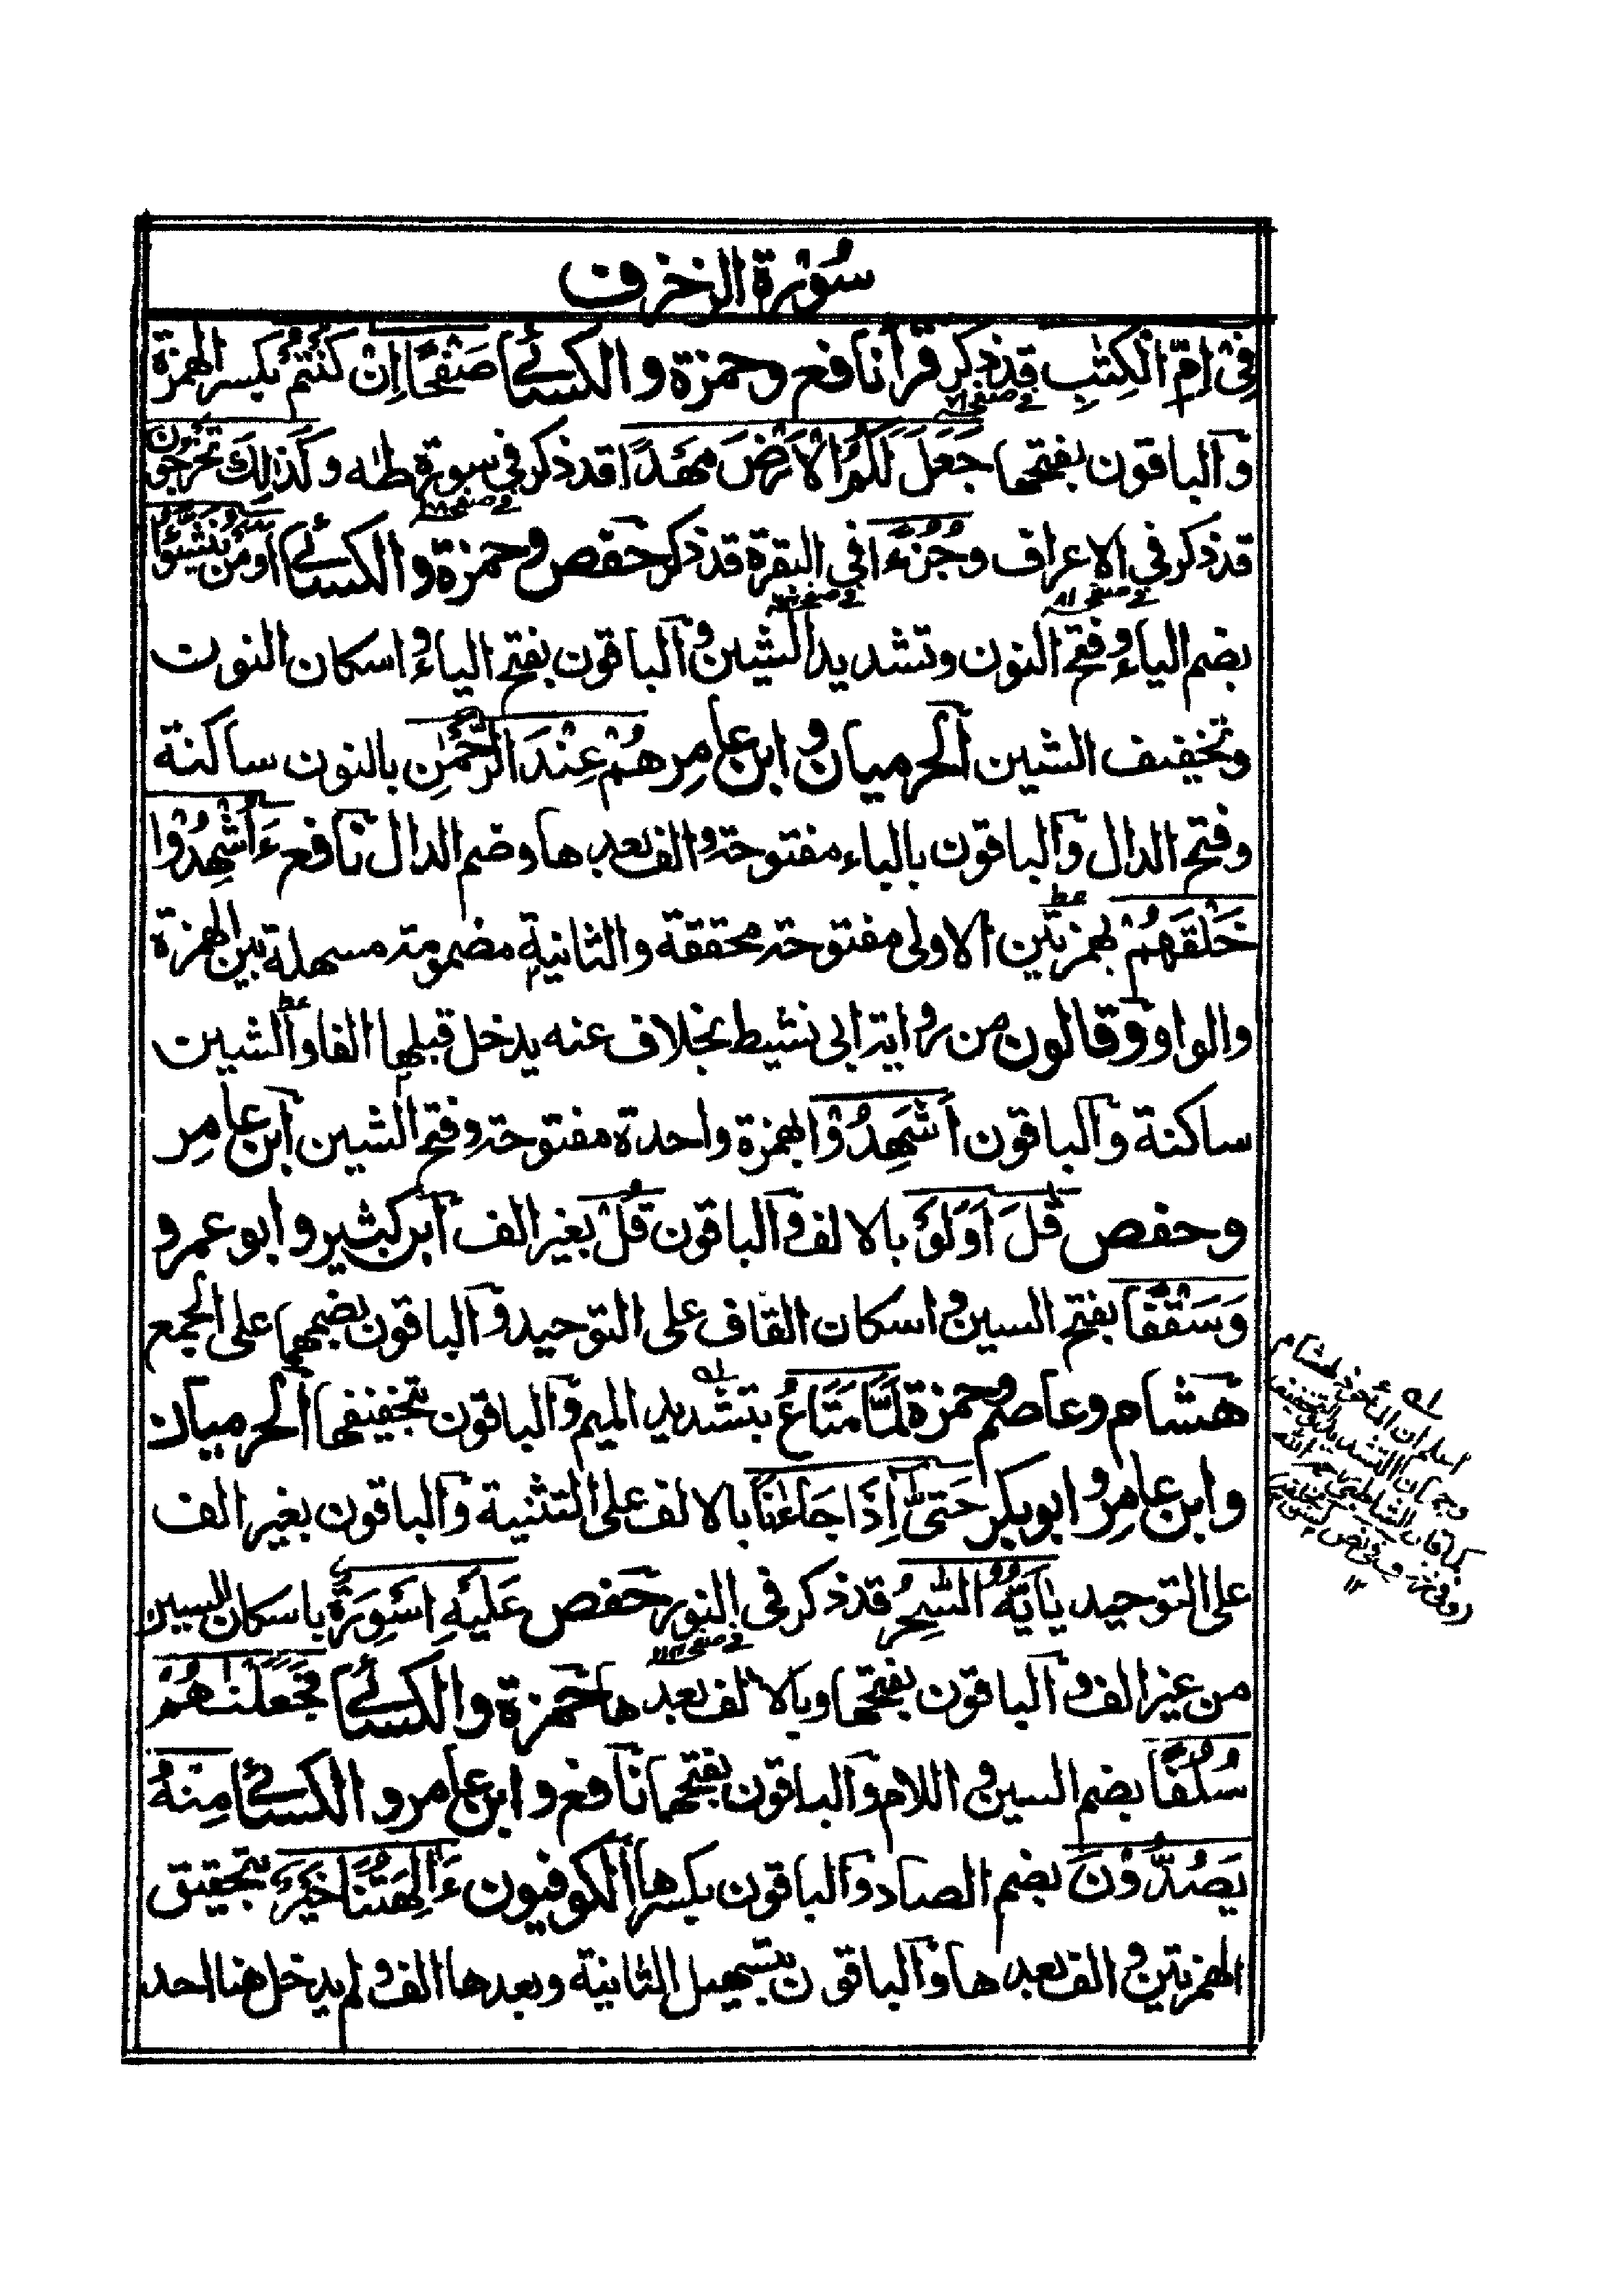 سُوْرة الزخرف
فِىْ اُمِّ الْكِتٰبِ قد ذكر قرأ نافع وحمزة والكسائے صَفْحًا اِنْ كُنْتُمْ بكسر الهمزة
فے صفحہ ٧١
والباقون بفتحها جَعَلَ لَكُمُ الْاَرْضَ مَهْدًا قد ذكر فى سورة طٰه وكَذٰلِكَ تُخْرَجُوْنَ
فے صفحہ
قد ذكر فى الاعراف وجُزْءًا فى البقرة قد ذكر حفص وحمزة والكسائے اَوَمَنْ يُنَشَّؤُا
فے صفحہ ٨١ فے صفحہ
بضم الياء وفتح النون وتشديد الشين والباقون بفتح الياء واسكان النون
وتخفيف الشين الحرميان وابن عامر هُمْ عِنْدَ الرَّحْمٰنِ بالنون ساكنة
وفتح الدال والباقون بالباء مفتوحة والف بعدها وضم الدال نافع ءَاُشْهِدُوْا
خَلْقَهُمْ بهمزتين الاولى مفتوحة محققة والثانية مضمومة مسهلة بين الهمزة
والواو وقالون من رواية ابى نشيط بخلاف عنه يدخل قبلها الفا والشين
ساكنة والباقون اَشَهِدُوْا بهمزة واحدة مفتوحة وفتح الشين ابن عامر
وحفص قٰلَ اَوَلَوْ بالالف والباقون قُلْ بغير الف ابن كثير وابو عمرو
وَسَقْفًا بفتح السين واسكان القاف على التوحيد والباقون بضمهما على الجمع
هشام وعاصم وحمزة لَمَّا مَتَاعُ بتشديد الميم والباقون بتخفيفها الحرميان
وابن عامر وابو بكر حَتّٰى اِذَا جَاءٰنَا بالالف على التثنية والباقون بغير الف
على التوحيد يٰاَيُّهُ السّٰحِرُ قد ذكر فى النور حفص عَلَيْهِ اَسْوِرَةٌ باسكان السين
فے صفحہ ١١٣
من غير الف والباقون بفتحها وبالالف بعدها حمزة والكسائے فَجَعَلْنٰهُمْ
سُلُفًا بضم السين واللام والباقون بفتحهما نافع وابن عامر والكسائے مِنْهُ
يَصُدُّوْنَ بضم الصاد والباقون بكسرها الكوفيون ءَاٰلِهَتُنَا خَيْرٌ بتحقيق
الهمزتين والف بعدها والباقون بتسهيل الثانية وبعدها الف ولم يدخل هنا احد
لہ
اعلم ان المأخوذ لهشام
وجهان التشديد والتخفيف
كما قال الشاطبى رحمه الله
١٢